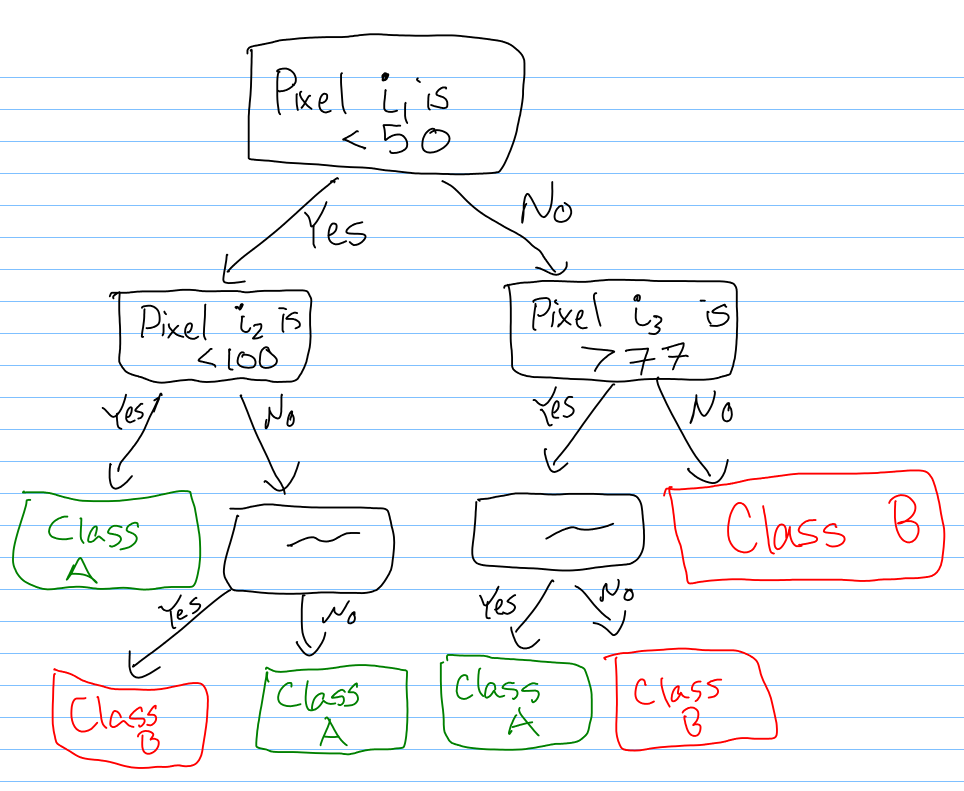 Pixel i₁ is
< 50
Yes
No
Pixel i₂ is
< 100
Pixel i₃ is
> 77
Yes
No
Yes
No
Class
A
Class B
Yes
No
Yes
No
Class
B
Class
A
Class
A
Class
B